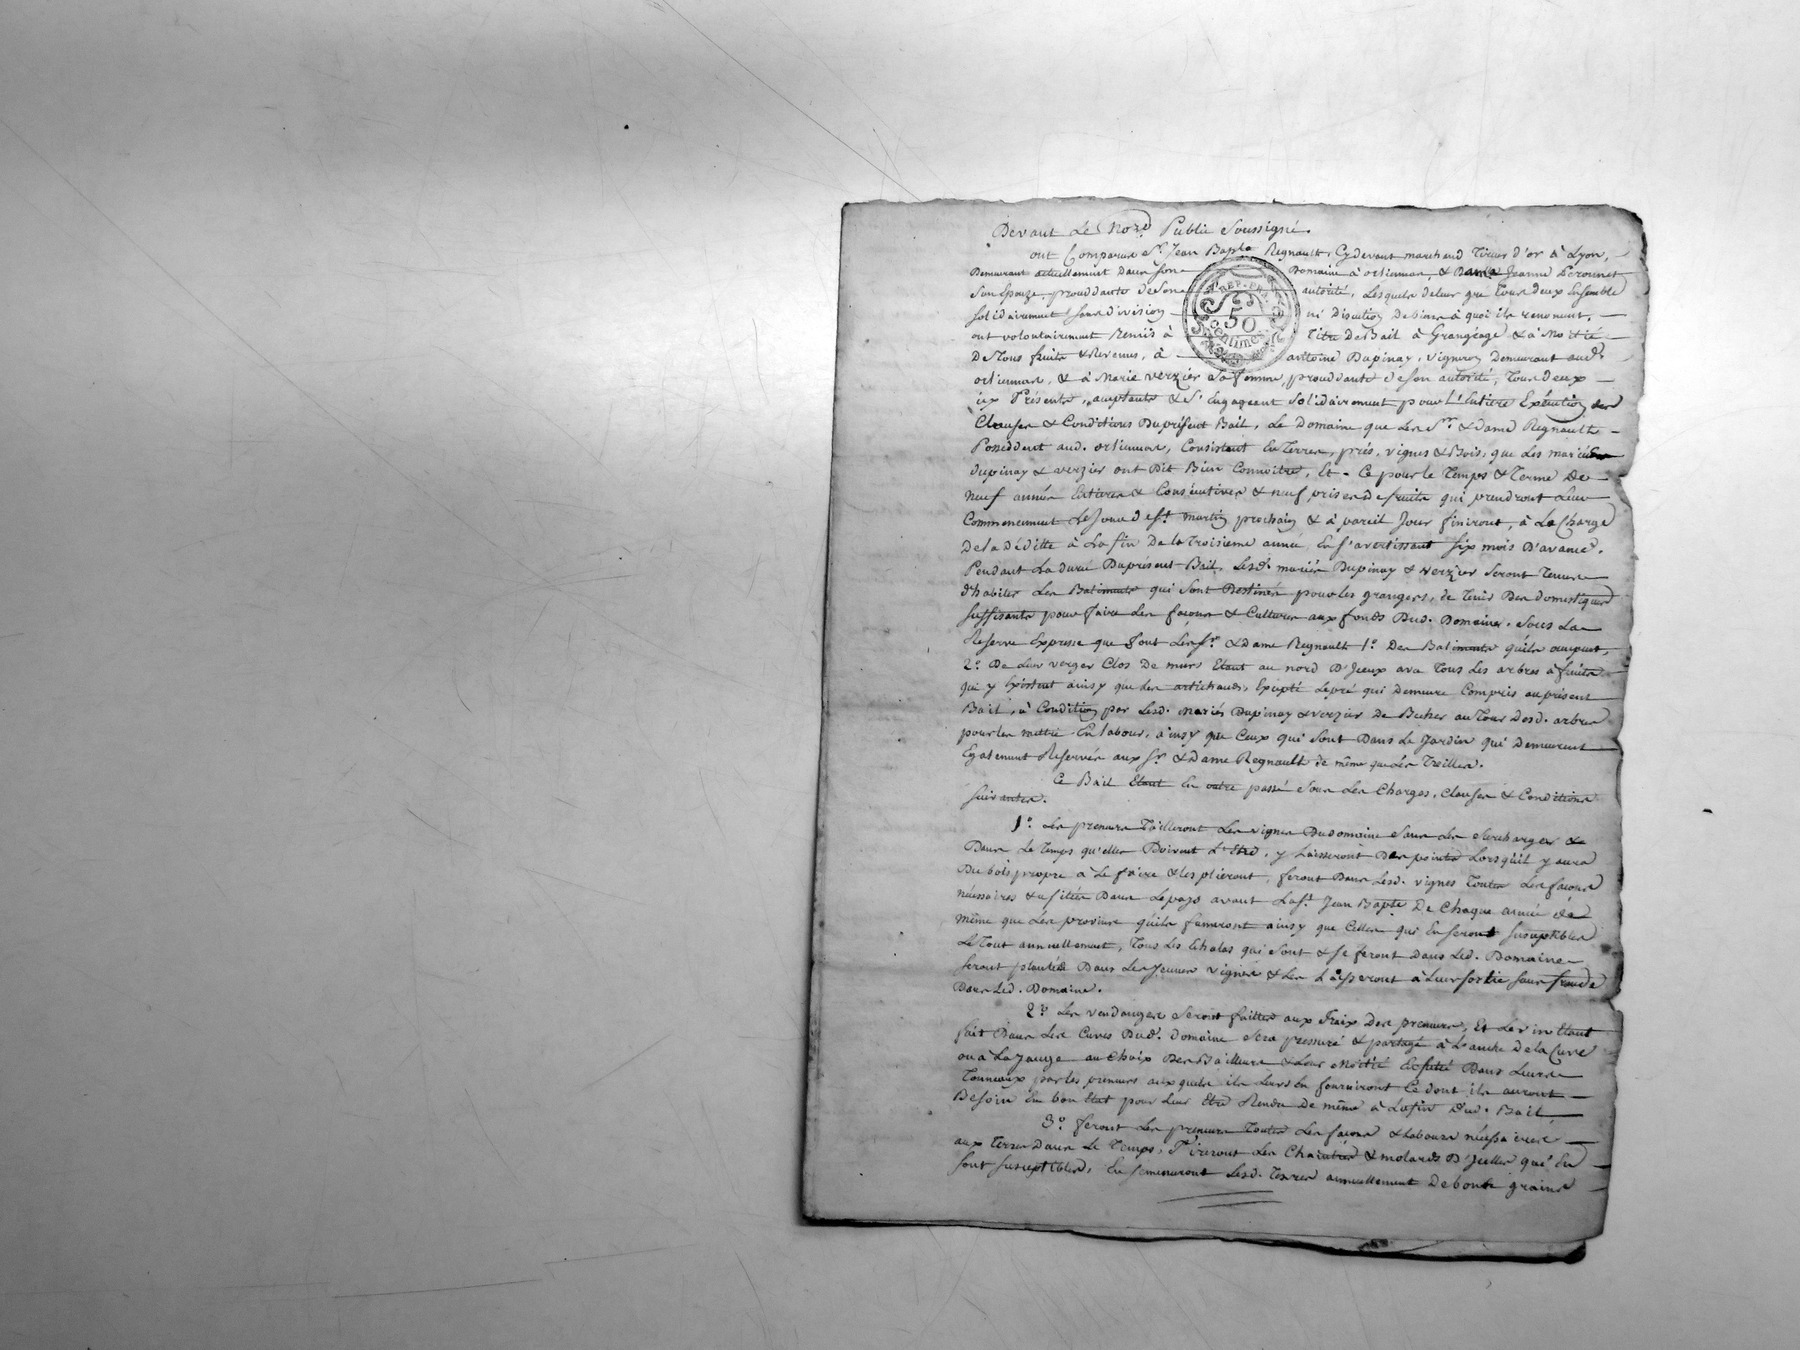 Devant Le No.re Public Soussigné.
ont Comparus Sr. Jean Bapte. Regnault, Cy devant marchand Tireur d'or à Lyon,
Demeurant actuellement dans son Domaine à orliennas, & Dame Jeanne
son Epouze, procédante de son autorité, Lesquels de leur gré Tous deux Ensemble
solidairement sans division ni Discution De biens à quoi ils renoncent,
ont volontairement Remis à Titre De Bail à Grangéage & à Moitié
De Tous fruits & Revenus, à antoine Dupinay, vigneron Demeurant aud.
orliennas, & à Marie verzier sa femme, procédante de son autorité, Tous deux
icy Présents, acceptants & S'Engageant Solidairement pour L'Entiere Exécution des
Clauses & Conditions Du présent Bail, Le Domaine que Les Sr. & Dame Regnault
Possèdent aud. orliennas, Consistant En Terres, prés, vignes & Bois, que Les mariés
dupinay & verzier ont Dit Bien Connoitre, Et Ce pour le Temps & Terme De
Neuf années Entieres & Consécutives & neuf prises De fruits qui prendront Leur
Commencement Le Jour de St. martin prochain & à pareil Jour finiront, à La Charge
De la Déditte à La fin De la Troisieme année En s'avertissant six mois D'avance.
Pendant La durée Du présent Bail, Lesd. mariés Dupinay & verzier Seront Tenus
d'habiter Les Batiments qui Sont Destinés pour les grangers, de Tenir Des domestiques
suffisants pour faire Les façons & Cultures aux fonds Dud. Domaine. Sous La
Réserve Expresse que font Les Sr. & dame Regnault 1o. Des Batiments qu'ils occupent,
2o. De Leur verger Clos De murs Etant au nord D'Jceux avec Tous Les arbres à fruits
qui y Existent ainsy que Les artichauds, Excepté Le pré qui Demeure Compris au présent
Bail, à Condition par Lesd. Mariés Dupinay & verzier De Becher au Tour Desd. arbres
pour les mettre En labour, ainsy que Ceux qui Sont Dans Le Jardin qui Demeurent
Egalement Réservés aux Sr. & Dame Regnault de même que Les Treilles.
Ce Bail Etant En outre passé Sous Les Charges, Clauses & Conditions
suivantes.
1o. Les preneurs Tailleront Les vignes Du domaine Sans Les Surcharger &
Dans Le Temps qu'elles Doivent L'Etre, y Laisseront Des pointes Lorsqu'il y aura
Du bois propre à Le faire & les plieront, feront Dans Lesd. vignes Toutes Les façons
nécessaires & usitées Dans Le pays avant La St. Jean Bapte. De Chaque année de
même que Les provins qu'ils fumeront ainsy que Celles qui En seront susceptibles
Le Tout annuellement, Tous Les Echalas qui Sont & se feront Dans Led. Domaine
seront plantés Dans Les Jeunes vignes & Les Laisseront à Leur sortie sans fraude
Dans Led. Domaine.
2o. Les vendanges Seront faittes aux Fraix Des preneurs, Et Le vin Etant
fait Dans Les Cuves Dud. Domaine Sera pressuré & partagé à L'anche De la Cuve
ou à La Jauge au Choix Des Bailleurs & Leur Moitié Dans Leurs
Tonneaux par les preneurs auxquels ils Leurs En fourniront Ce dont ils auront
Besoin En bon Etat pour Leur Etre Rendu De même à La fin Dud. Bail
3o. feront Les preneurs Toutes Les façons & Labours nécessaires
aux Terres Dans Le Temps, Tireront Les Chaintres & molards D'Jcelles qui En
sont susceptibles, En semenceront Lesd. Terres annuellement De bons grains
REP. FRA.
50
Centimes